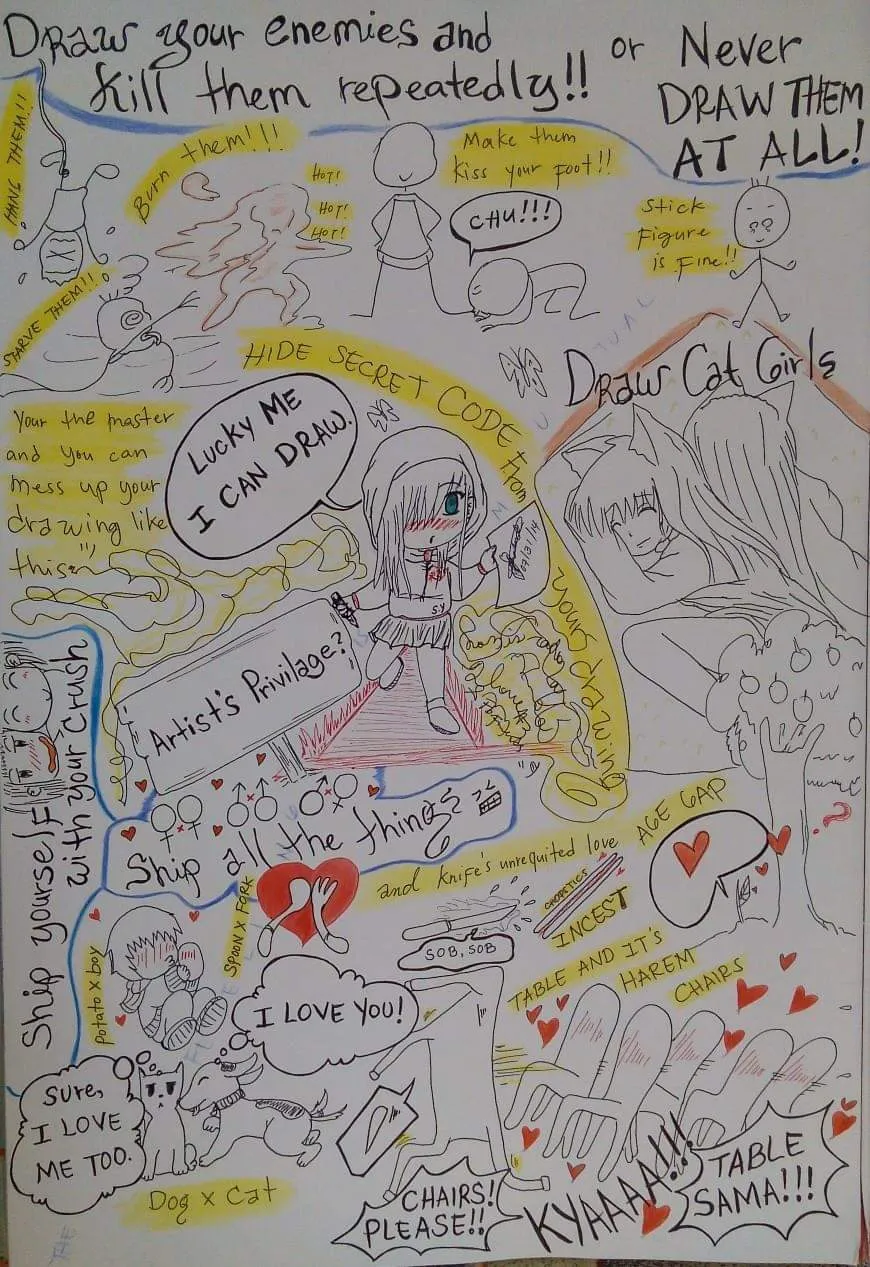 Draw your enemies and
kill them repeatedly!!
or Never
DRAW THEM
AT ALL!
HANG THEM!!
Burn them!!!
HOT!
HOT!
HOT!
Make them
kiss your foot!!
CHU!!!
Stick
Figure
is Fine!!
STARVE THEM!!
HIDE SECRET CODE from
yours drawing
Draw Cat Girls
Your the master
and you can
mess up your
drawing like
this
LUCKY ME
I CAN DRAW.
07/31/14
S.Y
Artist's Privilage?
Ship yourself
with your Crush
Ship all the things
and knife's unrequited love
AGE GAP
INCEST
SPOON X FORK
SOB, SOB
TABLE AND IT'S
HAREM
CHAIRS
Potato x boy
I LOVE YOU!
SURE,
I LOVE
ME TOO.
Dog x Cat
CHAIRS!
PLEASE!!
KYAAAA!!!
TABLE
SAMA!!!
THE